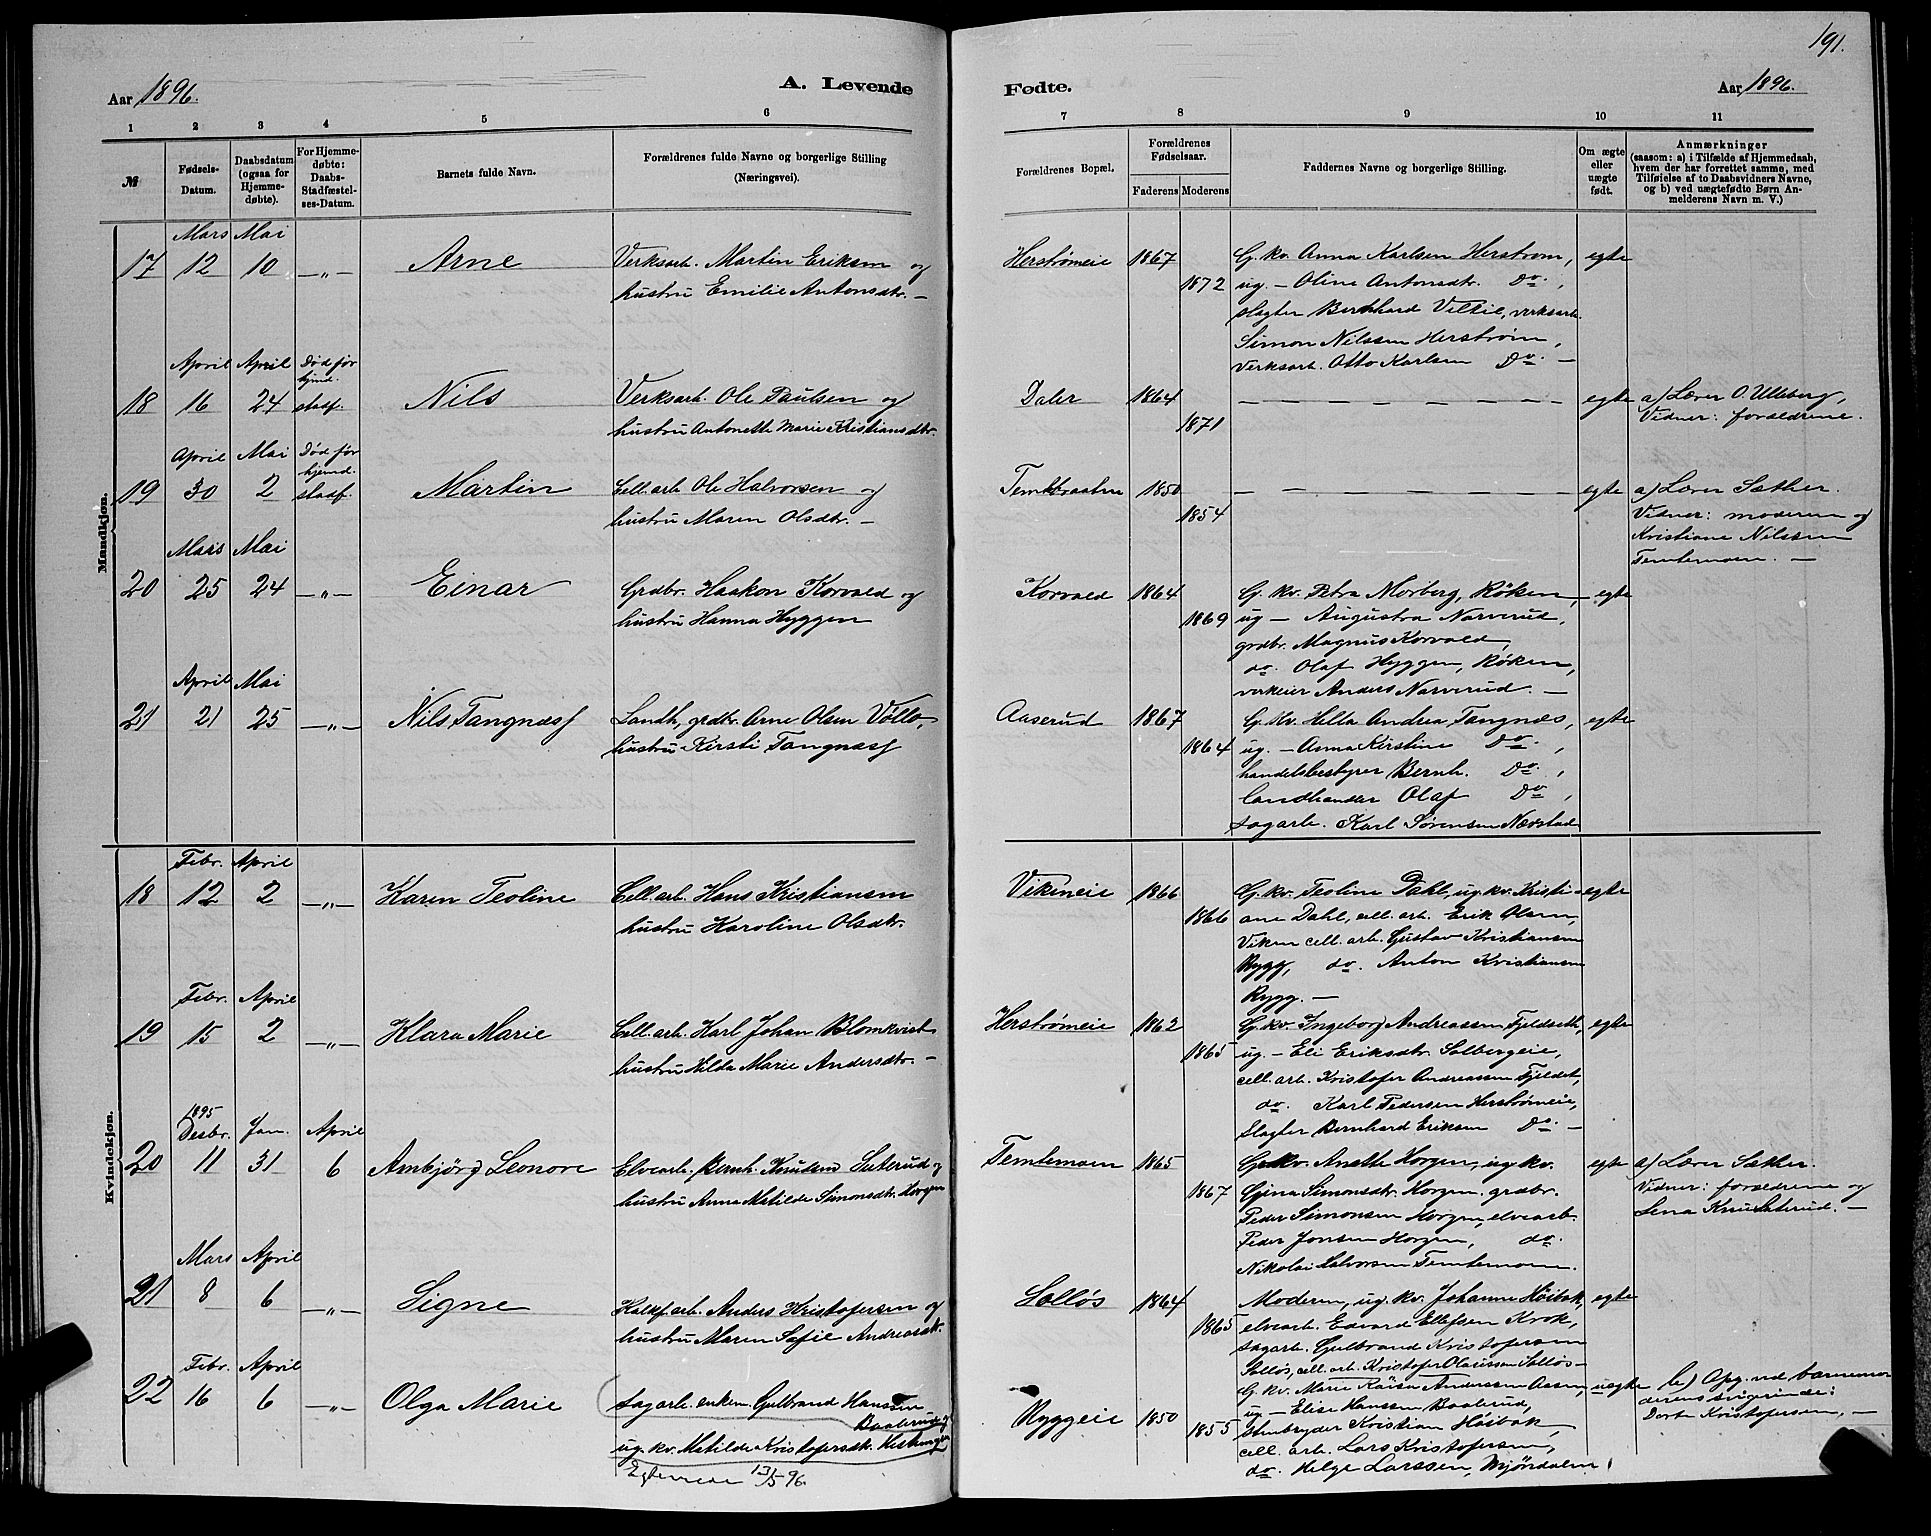 191.
Aar 1896.
A. Levende
Fødte.
Aar 1896.
1 2 3 4 5 6
7 8 9 10 11
№
Fødsels-
Datum.
Daabsdatum
(ogsaa for
Hjemme-
døbte).
For Hjemme-
døbte:
Daabs-
Stadfæstel-
ses-Datum.
Barnets fulde Navn.
Forældrenes fulde Navne og borgerlige Stilling
(Næringsvei).
Forældrenes Bopæl.
Forældrenes
Fødselsaar.
Faderens Moderens
Faddernes Navne og borgerlige Stilling.
Om ægte
eller
uægte
født.
Anmærkninger
(saasom: a) i Tilfælde af Hjemmedaab,
hvem der har forrettet samme, med
Tilføielse af to Daabsvidners Navne,
og b) ved uægtefødte Børn An-
melderens Navn m. V.)
Mandkjøn.
Mars Mai
17 12 10 —„— Arne
Verksarb. Martin Eriksen og
hustru Emilie Antonsdtr. —
Herstrømeie 1867
1872
G. kv. Anna Karlsen Herstrøm,
ug. — Oline Antonsdtr. Do.,
slagter Bernhard Veltie, verksarb.
Simon Nilssen Herstrøm,
Verksarb. Otto Karlsen Do. —
egte
April April Død før
hjemd.
18 16 24 stadf. Nils
Verksarb. Ole Paulsen og
hustru Antonette Marie Kristiansdtr.
Daler 1864
1871
— — — — — — — —
egte
a) Lærer O. Ulleberg,
Vidner: forældrene.
April Mai Død før
hjemd.
19 30 2 stadf. Martin
Cell. arb. Ole Halvorsen og
hustru Maren Olsdtr. —
1850
1854
— — — — — — — —
egte
a) Lærer Sæther.
Vidner: moderen og
Kristiane Nilssen
Temtemoen. —
Mars Mai
20 25 24 —„— Einar
Grdbr. Haakon Korvald og
hustru Hanna Hyggen
Korvald 1864
1869
G. kv. Petra Morberg, Røken,
ug — Augustra Narverud,
grdbr. Magnus Korvald,
do. Olaf Hyggen, Røken,
verkeier Anders Narverud. —
egte
April Mai
21 21 25 —„— Nils Tangnæss
Landh, grdbr. Arne Olsen Vøllo,
hustru Kirsti Tangnæss
Aaserud 1867
1864
G. kv. Helda Andrea Tangnæs,
ug. — Anna Kirstine Do.,
handelsbestyrer Bernh. Do.,
landhandler Olaf Do,
sagarb. Karl Sørensen Nævstad
egte
Kvindekjøn.
Febr. April
18 12 2 —„— Karen Teoline
Cell. arb. Hans Kristiansen
hustru Karoline Olsdtr.
Vikeneie 1866
1866
G. kv. Teoline Dahl, ug. kv. Kristi-
ane Dahl, cell. arb. Erik Olsen,
Viken cell. arb. Gustav Kristiansen
Rygg, do. Anton Kristiansen
Rygg. —
egte
Febr. April
19 15 2 —„— Klara Marie
Cell. arb. Karl Johan Blomkvist
hustru Hilda Marie Andersdtr. —
Herstrømeie 1862
1865
G. kv. Ingeborg Andreassen Fjeldseth,
ug. — Eli Eriksdtr. Solbergeie,
cell. arb. Kristofer Andreassen Fjeldet,
do. Karl Pedersen Herstrømeie,
Slagter Bernhard Eriksen Do. —
egte
1895
Desbr. Jan. April
20 11 31 6 Ambjørg Leonore
Elvearb. Bernh. Knudsen Seterud og
hustru Anna Matilde Simonsdtr. Horgen
Temtemoen 1865
1867
G. kv. Anette Horgen, ug kv.
Gjina Simonsdtr. Horgen. grdbr.
Peder Simonsen Horgen, elvearb.
Peder Jonsen Horgen, do.
Nikolai Halvorsen Temtemoen.
egte
a) Lærer Sæther.
Vidner: forældrene og
Lena Knudsen Seterud. —
Mars April
21 8 6 —„— Signe
Kalkf. arb. Anders Kristofersen og
hustru Maren Sofie Andreasdtr.
Solløs 1864
1865
Moderen, ug. kv. Johanne Høibak,
elvearb. Edvard Ellefsen Krok,
sagarb. Gulbrand Kristofersen
Solløs, cell. arb. Kristofer Olaussen Solløs —
egte
Febr. April
22 16 6 —„— Olga Marie
sagarb. enkem. Gulbrand Hansen
Baalerud og
ug. kv. Matilde Kristofersdtr.
13/5 96.
Ryggeie 1850
1855
G. kv. Marie Andersen Aasen,
ug — Elise Hanssen Baalerud,
Stenbryder Kristian Høibak,
cell. arb. Lars Kristofersen,
do. Helge Larssen, Mjøndalen
uegte
b) Opg. ved barnemo
derens svigerinde:
Dorte Kristofersen, —